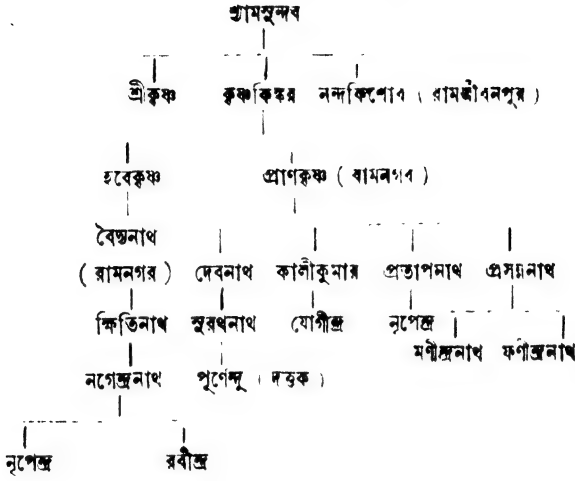 শ্যামসুন্দব
শ্রীকৃষ্ণ কৃষ্ণকিঙ্কর নন্দকিশোব ( রামজীবনপুর )
হবেকৃষ্ণ প্রাণকৃষ্ণ ( বামনগব )
বৈদ্যনাথ
( রামনগর ) দেবনাথ কালীকুমার প্রতাপনাথ প্রসন্ননাথ
ক্ষিতিনাথ সুরথনাথ যোগীন্দ্র নৃপেন্দ্র
মণীন্দ্রনাথ ফণীন্দ্রনাথ
নগেন্দ্রনাথ পূর্ণেন্দু ( দত্তক )
নৃপেন্দ্র রবীন্দ্র